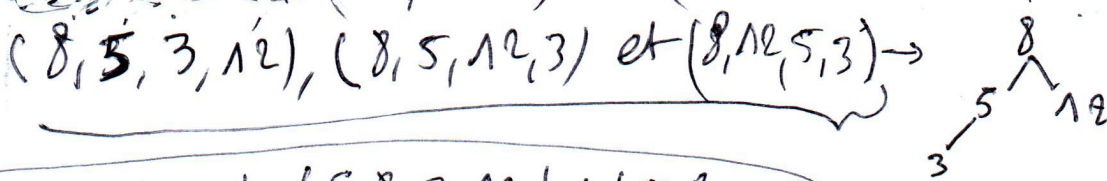 (8, 5, 3, 12), (8, 5, 12, 3) et (8, 12, 5, 3) →
8
5 12
3